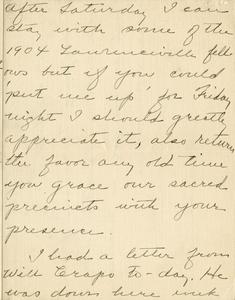 after Saturday I can
stay with some of the
1904 Lawrenceville fell-
ows but if you could
'put me up' for Friday
night I should greatly
appreciate it, also return
the favor any old time
you grace our sacred
precincts with your
presence.
I had a letter from
Will Crapo to-day. He
was down here week